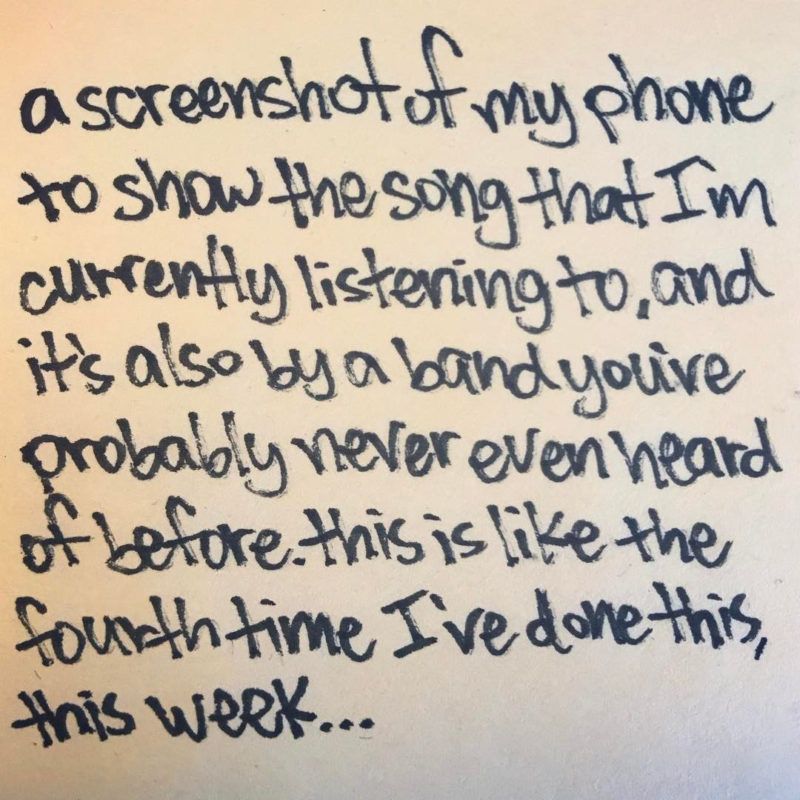 a screenshot of my phone
to show the song that I'm
currently listening to, and
it's also by a band you've
probably never even heard
of before. this is like the
fourth time I've done this,
this week...